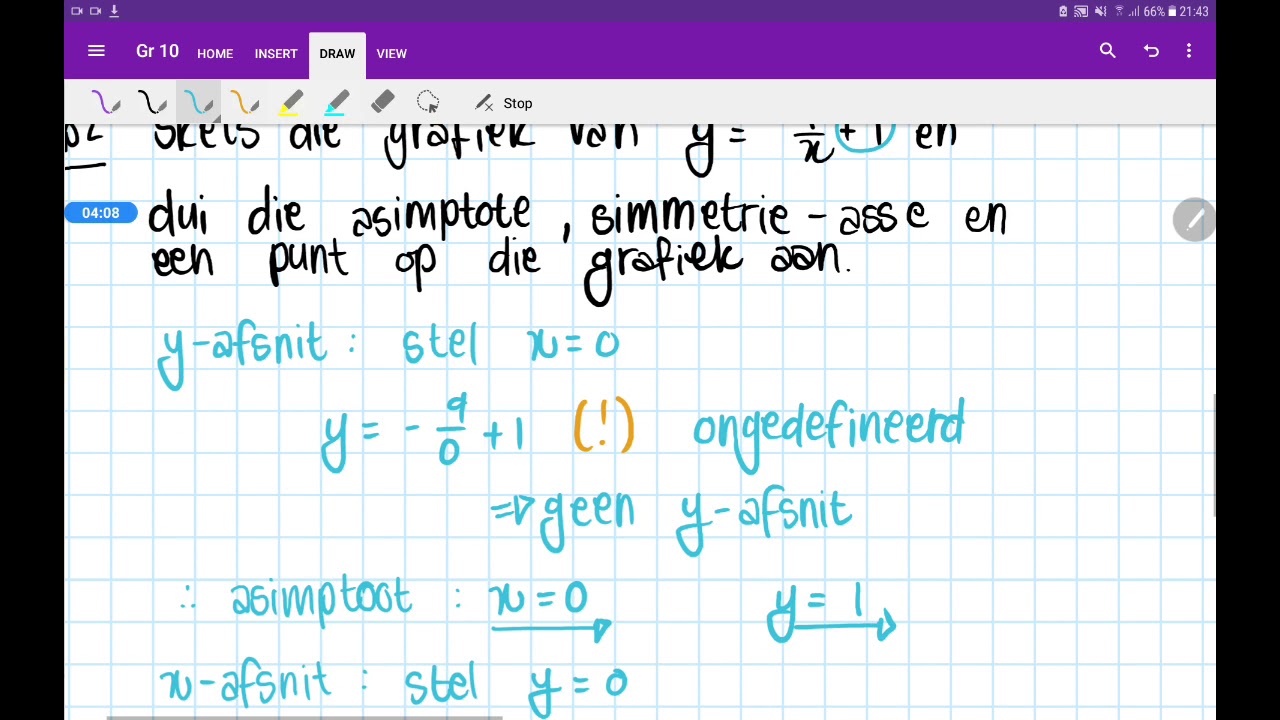 66% 21:43
Gr 10 HOME INSERT DRAW VIEW
Stop
Skets die grafiek van y = /x + 1 en
04:08
dui die asimptote, simmetrie-asse en
een punt op die grafiek aan.
y-afsnit : stel x = 0
y = - 9/0 + 1 (!) ongedefineerd
⇒ geen y-afsnit
∴ asimptoot : x = 0 y = 1
x-afsnit : stel y = 0